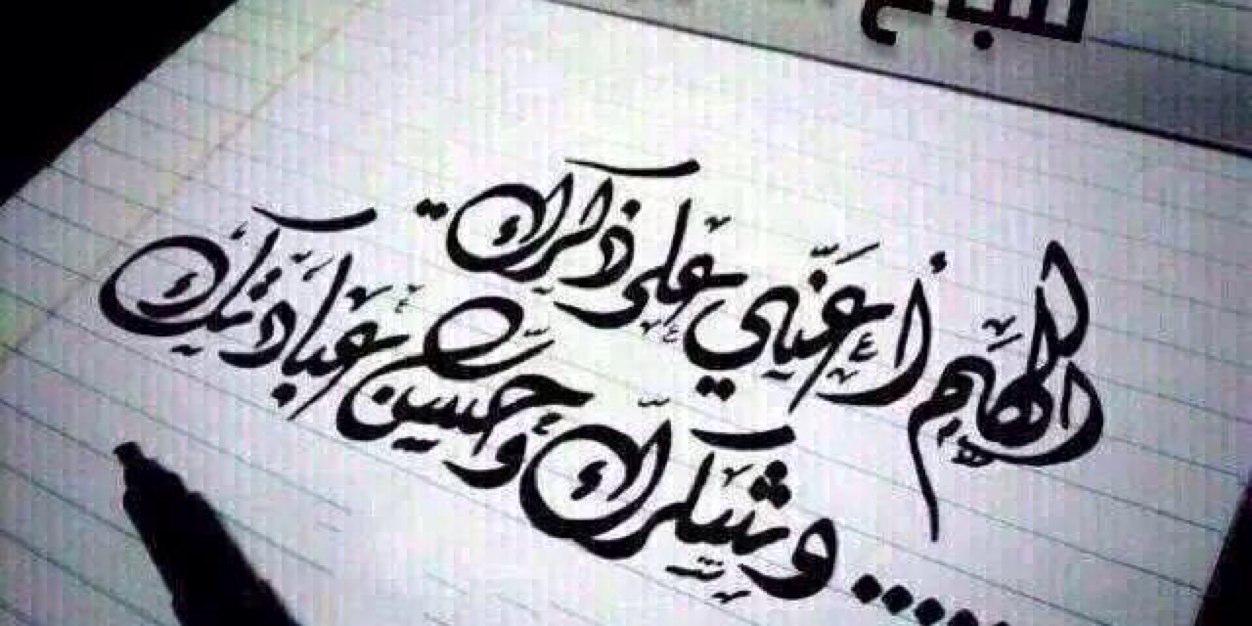 اللهم أعني على ذكرك
وشكرك وحسن عبادتك